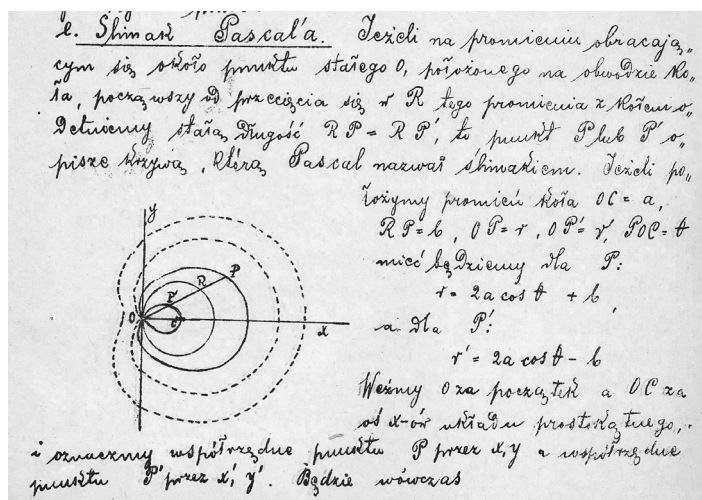 l. Ślimak Pascal'a. Jeżeli na promieniu obracają„
cym się około punktu stałego O, położonego na obwodzie ko„
ła, począwszy od przecięcia się w R tego promienia z kołem o„
detniemy stałą długość RP = RP', to punkt P lub P' o„
pisze krzywą, którą Pascal nazwał ślimakiem. Jeżeli po„
łożymy promień koła OC = a,
RP = b, OP = r, OP' = r', POC = θ
mieć będziemy dla P:
r = 2a cos θ + b
a dla P':
r' = 2a cos θ - b
Weźmy O za początek a OC za
oś x-ów układu prostokątnego,
i oznaczmy współrzędne punktu P przez x, y a współrzędne
punktu P' przez x', y'. Będzie wówczas
y
P
R
P'
O
C
x